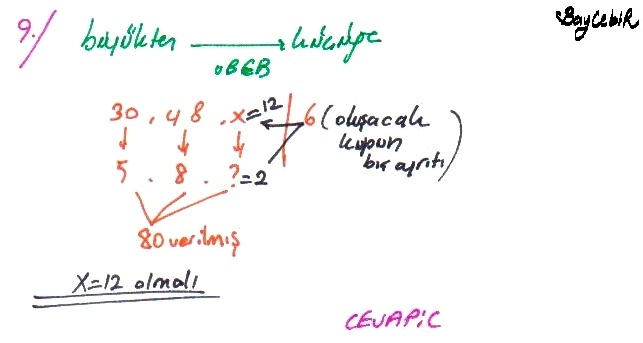 BayCebiR
9./ büyükten → küçüğe
OBEB
30 . 48 . x=12 | 6 (oluşacak
küpün
bir ayrıtı)
5 . 8 . ?=2
80 verilmiş
X=12 olmalı
CEVAP:C